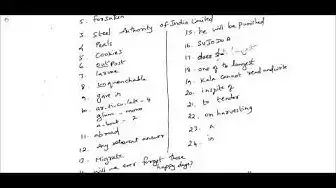 5. forsaken
3. Steel Authority of India Limited
4. Peels
5. Cookies
6. outPost
7. larvae
8. unquenchable
9. give in
10. ar-ti-cu-late - 4
glam - mono
a-bout - 2
11. abroad
12. Any relevant answer
13. Migrate
14. will we ever forget those happy days?
15. he will be punished
16. SVIOIOA
17. does
18. one of the longest
19. Kala cannot read and write
20. inspite of
21. to tender
22. on harvesting
23. A
24. in